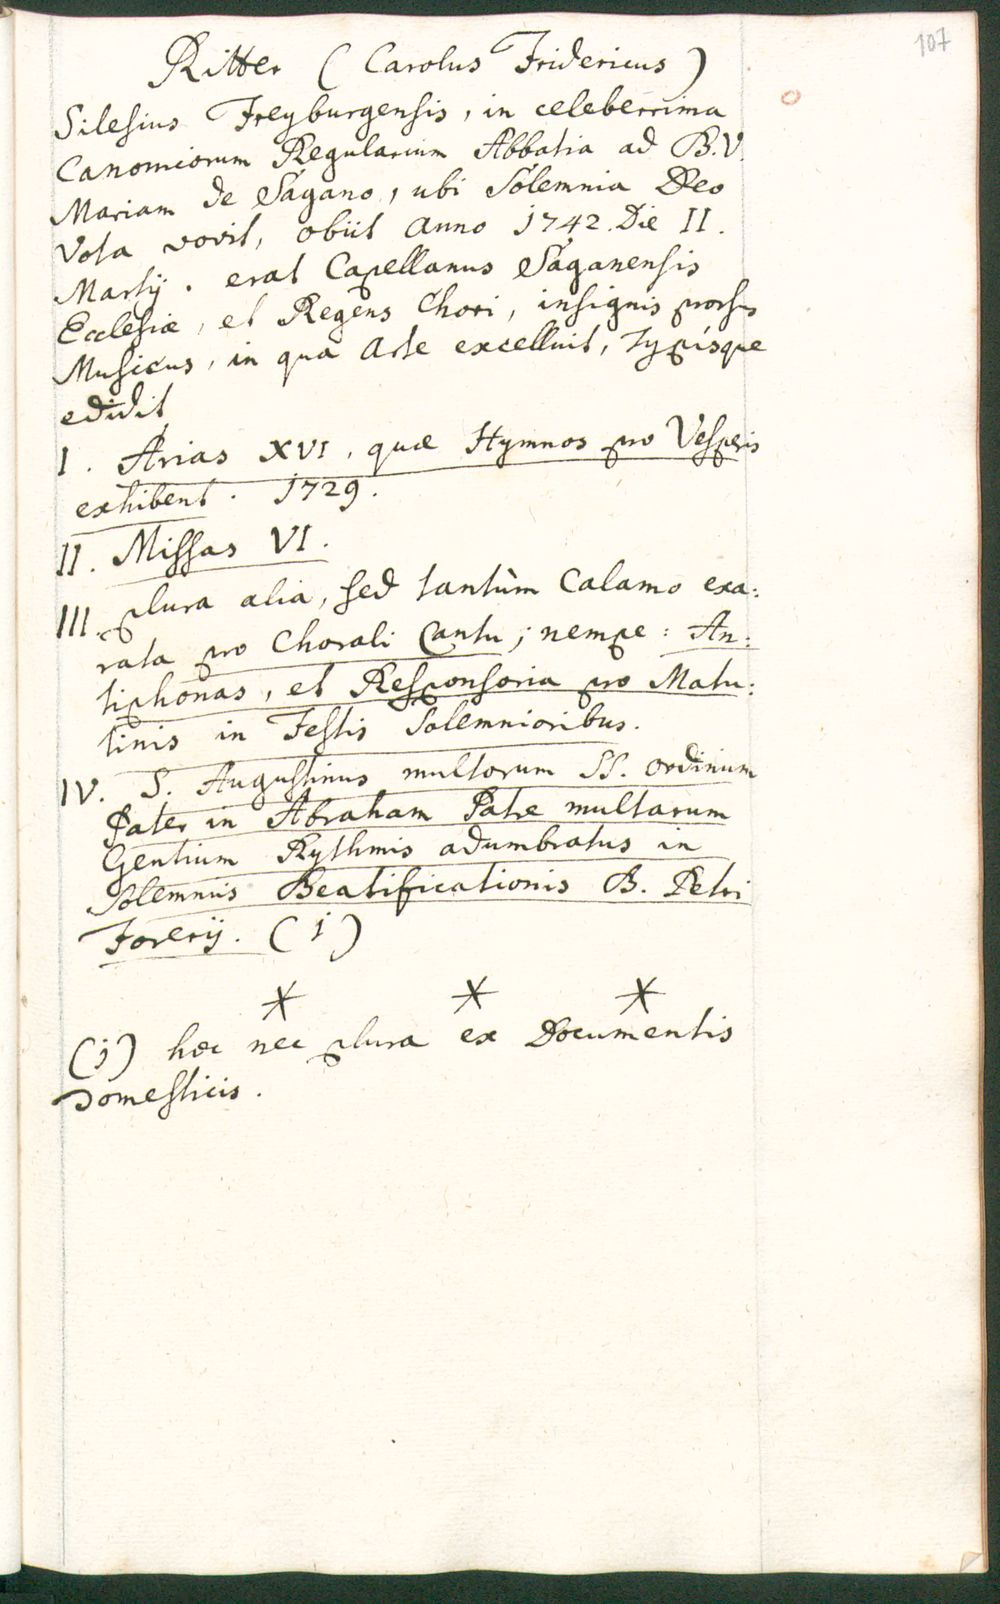 107
Ritter (Carolus Fridericus)
Silesius Freyburgensis, in celeberrima
Canonicorum Regularium Abbatia ad B.V.
Mariam de Sagano, ubi Solemnia Deo
Vota vovit, obiit Anno 1742. Die II.
Martij. erat Capellanus Saganensis
Ecclesiæ, et Regens Chori, insignis prorsus
Musicus, in quâ Arte excelluit, Typisque
edidit
I. Arias XVI, quæ Hymnos pro Vesperis
exhibent. 1729.
II. Missas VI.
III. plura alia, sed tantùm Calamo exa:
rata pro Chorali Cantu; nempe: An:
tiphonas, et Responsoria pro Matu:
tinis in Festis Solemnioribus.
IV. S. Augustinus multorum SS. ordinum
Pater in Abraham Patre multarum
Gentium Rythmis adumbratus in
Solemniis Beatificationis B. Petri
Forerij. (j)
* * *
(j) hæc nec plura ex Documentis
Domesticis.